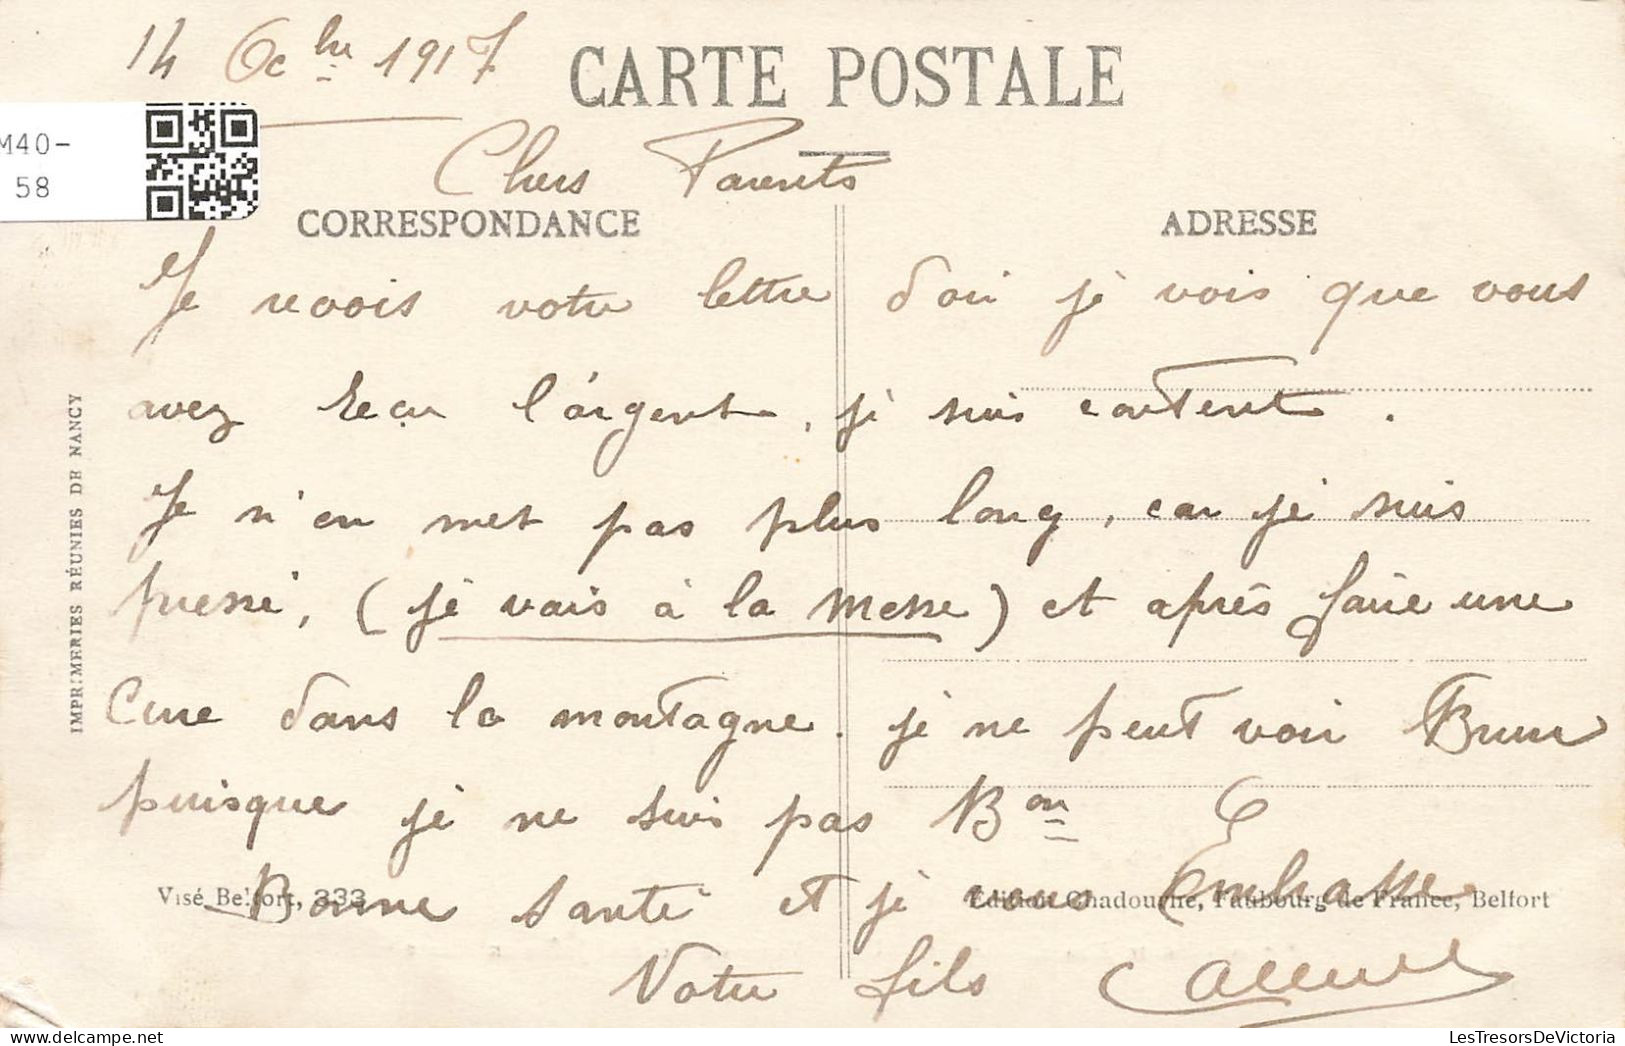 14 Oc^bre 1917
CARTE POSTALE
M40-
58
Chers Parents
CORRESPONDANCE
ADRESSE
Je reçois votre lettre d'où je vois que vous
avez reçu l'argent, je suis content.
Je n'en met pas plus long, car je suis
pressé, (je vais à la messe) et après faire une
Cure dans la montagne. je ne peut voir Brun
puisque je ne suis pas B^on
Bonne santé et je vous Embrasse
Votre fils
Visé Belfort, 333
Edition Chadourne, Faubourg de France, Belfort
IMPRIMERIES RÉUNIES DE NANCY
LesTresorsDeVictoria